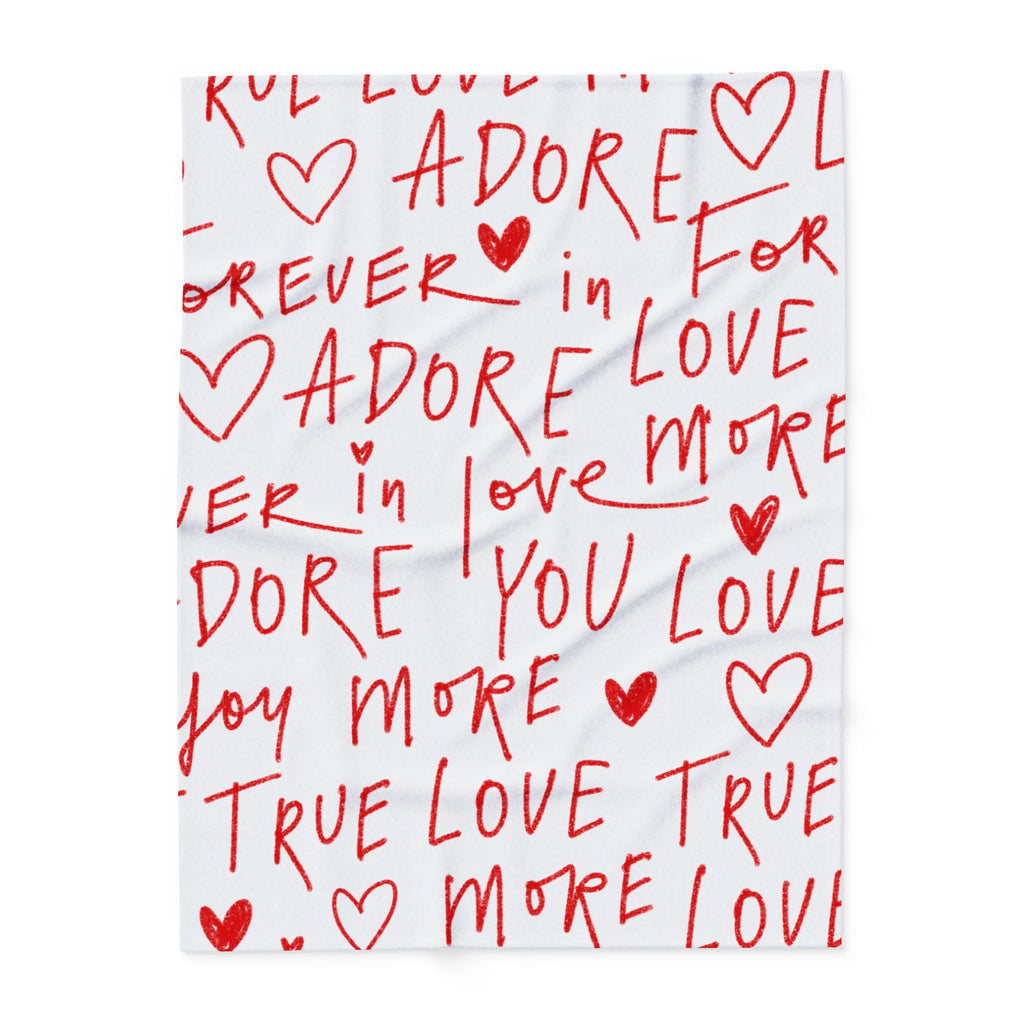 TRUE LOVE
ADORE L
FOREVER in FOR
ADORE LOVE
VER in love MORE
DORE YOU LOVE
joy MORE
TRUE LOVE TRUE
MORE LOVE